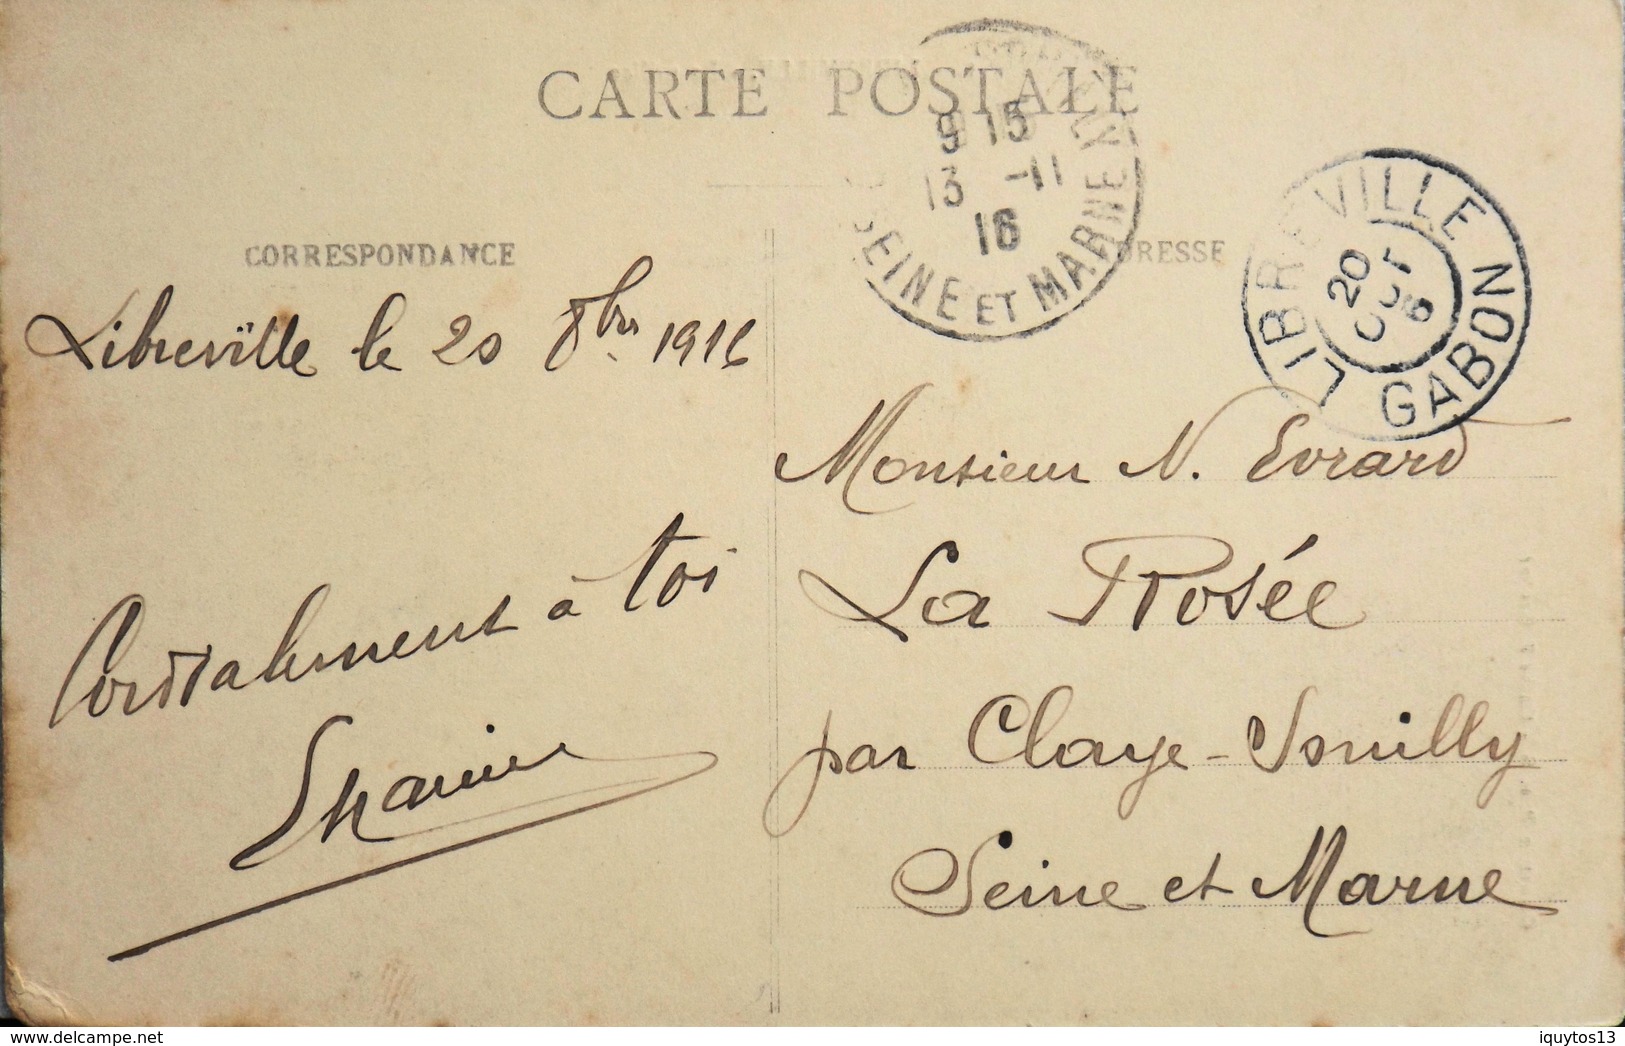 CARTE POSTALE
9 15
13 -11
16
SEINE ET MARNE
LIBREVILLE
20
OCT
6
GABON
CORRESPONDANCE
ADRESSE
Libreville le 20 8bre 1916
Cordialement à toi
Monsieur N. Evrard
La Rosée
par Claye-Souilly
Seine et Marne
delcampe.net
iquytos13